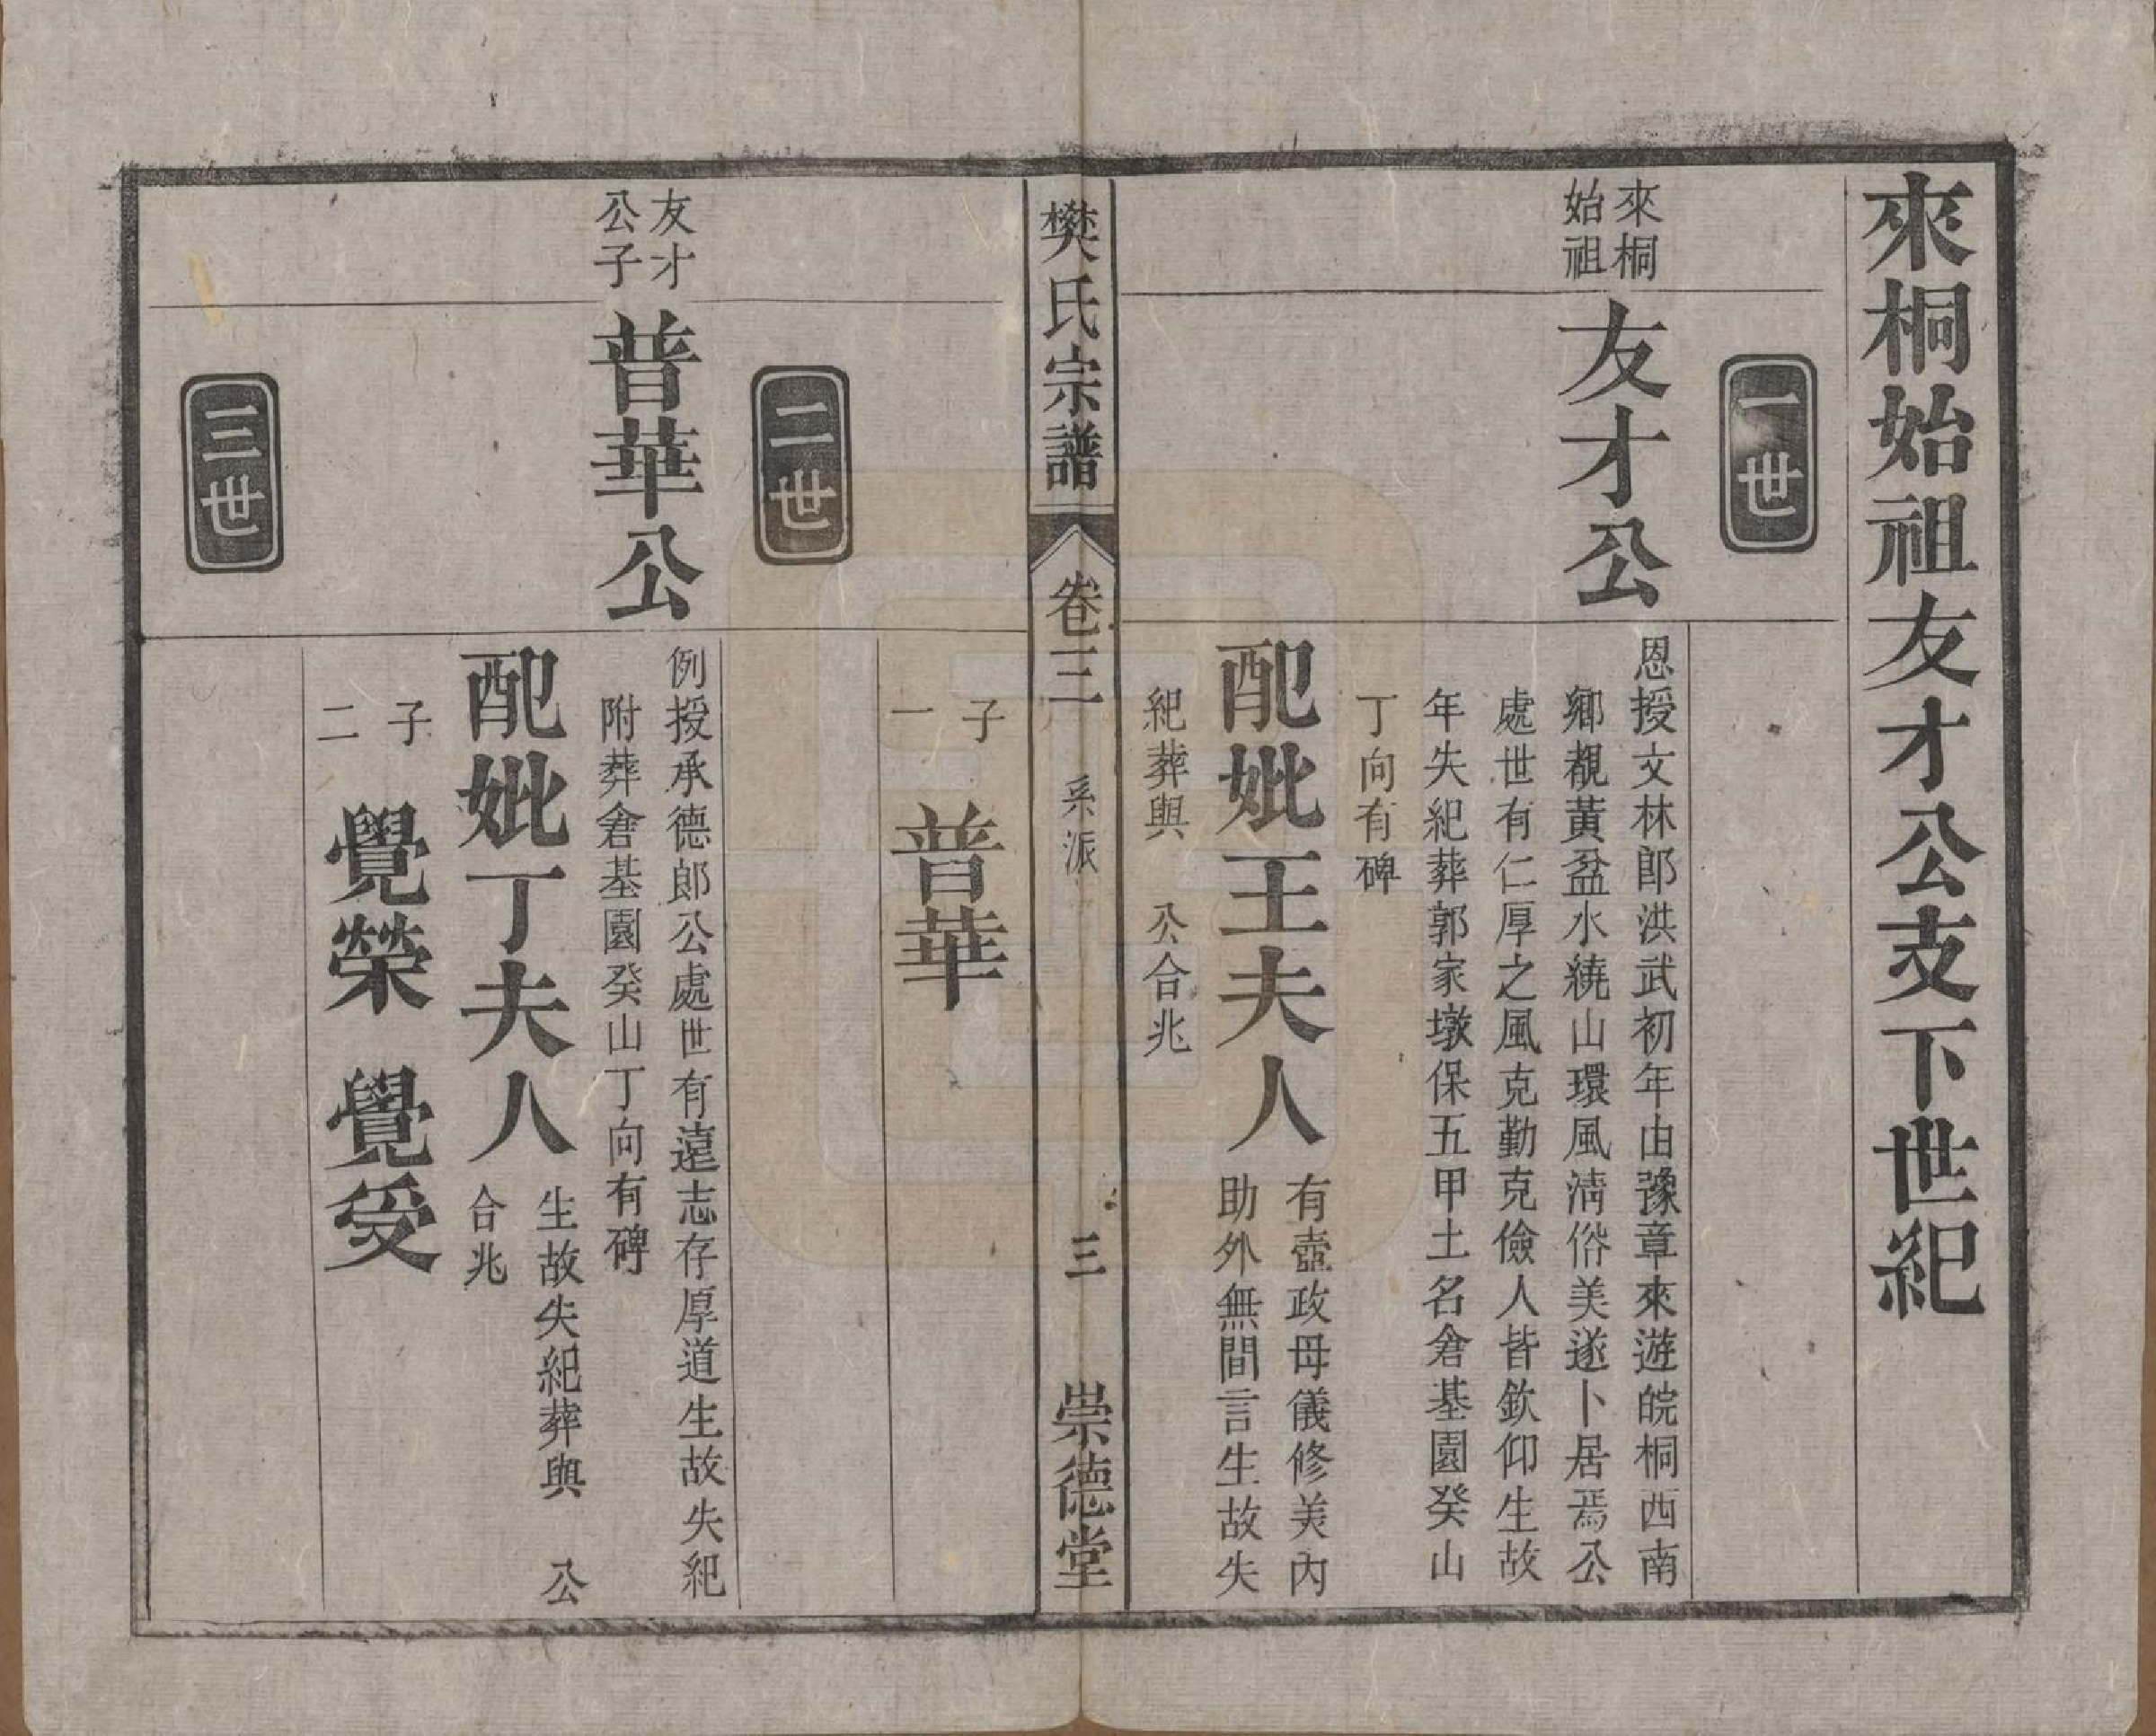 來桐始祖友才公支下世紀
一世
來桐
始祖
友才公
恩授文林郎洪武初年由豫章來遊皖桐西南
鄉覩黃盆水繞山環風淸俗美遂卜居焉公
處世有仁厚之風克勤克儉人皆欽仰生故
年失紀葬郭家墩保五甲土名倉基園癸山
丁向有碑
配妣王夫人
有壼政母儀修美內
助外無間言生故失
紀葬與　公合兆
樊氏宗譜
卷三
系派
三
崇德堂
子
一
普華
二世
友才
公子
普華公
例授承德郎公處世有遠志存厚道生故失紀
附葬倉基園癸山丁向有碑
配妣丁夫人
生故失紀葬與　公
合兆
子
二
覺榮　覺受
三世